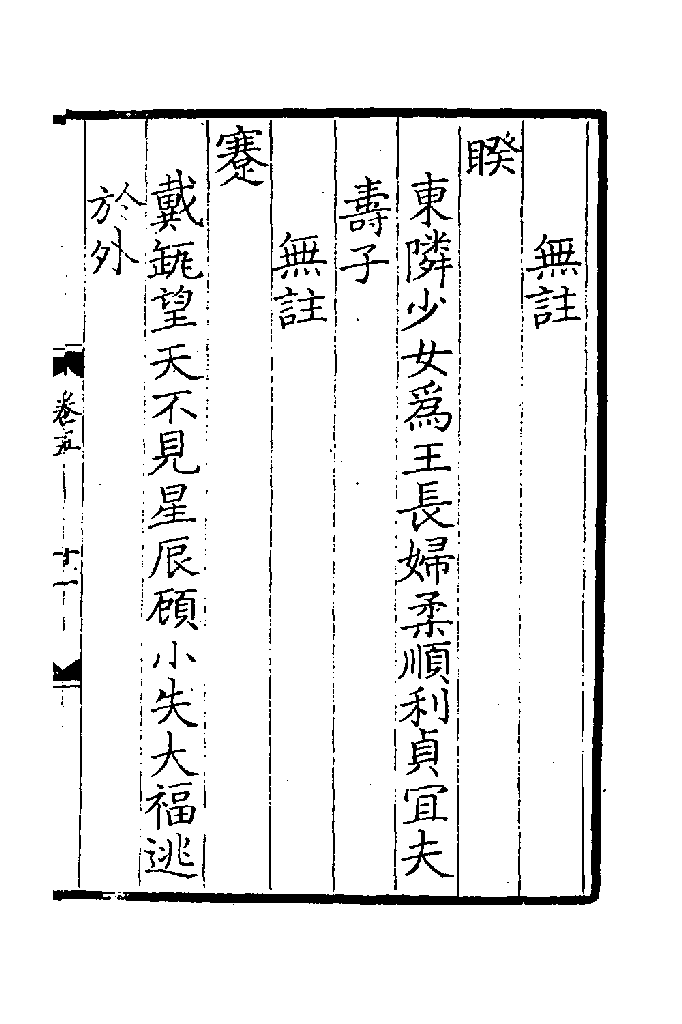 無註
睽
東隣少女爲王長婦柔順利貞宜夫
壽子
無註
蹇
戴缾望天不見星辰顧小失大福逃
於外
卷五
十一